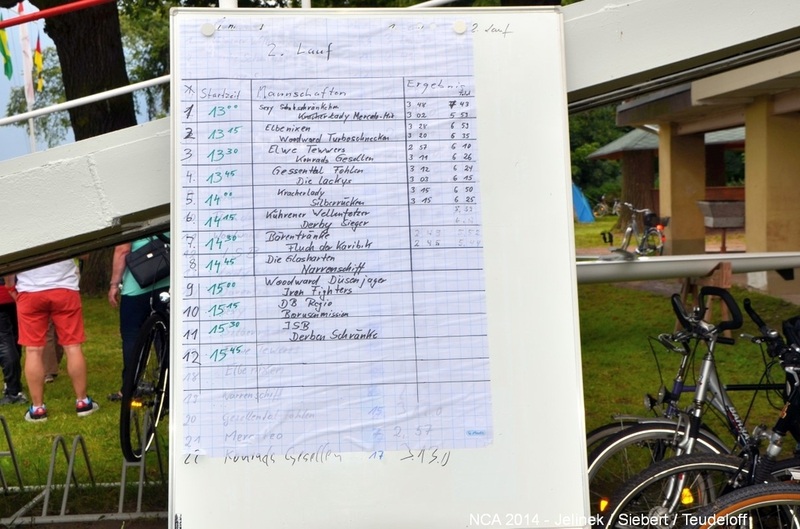 2. Lauf
2. Lauf
X Startzeit Mannschaften Ergebnis
1 13⁰⁰ Sexy 3 48 7 43
Kracherlady Mercedes- 3 02 5 53
2 13¹⁵ Elbeniken 3 28 6 53
Woodward Turboschnecken 3 20 6 35
3 13³⁰ Elwe Tewwers 2 57 6 10
Konrads Gesellen 3 11 6 26
4. 13⁴⁵ Gessental Fohlen 3 12 6 24
Die Lackys 3 03 6 15
5. 14⁰⁰ Kracherlady 3 15 6 50
Silberrücken 3 15 6 25
6. 14¹⁵ Kührener Wellentöter
Derby Sieger
7. 14³⁰ Bärentränke 2 43
Fluch der Karibik 2 46
8 14⁴⁵ Die Glasharten
Narrenschiff
9 15⁰⁰ Woodward Düsenjäger
Iron Fighters
10 15¹⁵ DB Regio
Borussenmission
11 15³⁰ JSB
Derben Schränke
12 15⁴⁵
18 Elbeniken
Narrenschiff
20 Gessental Fohlen 15
21 Meer 2.57
22 Konrads Gesellen 17 3.13,0
NCA 2014 - Jelinek / Siebert / Teudeloff